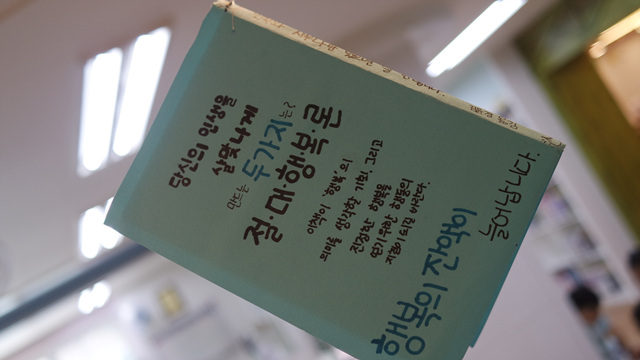 당신의 인생을
살맛나게
만드는 두가지는?
절·대·행·복·론
이책이 '행복'의
의미를 생각할 기회, 그리고
진정한 행복을
얻기 위한 행동의
지침이 되길 바란다.
행복의 잔액이
늘어납니다.